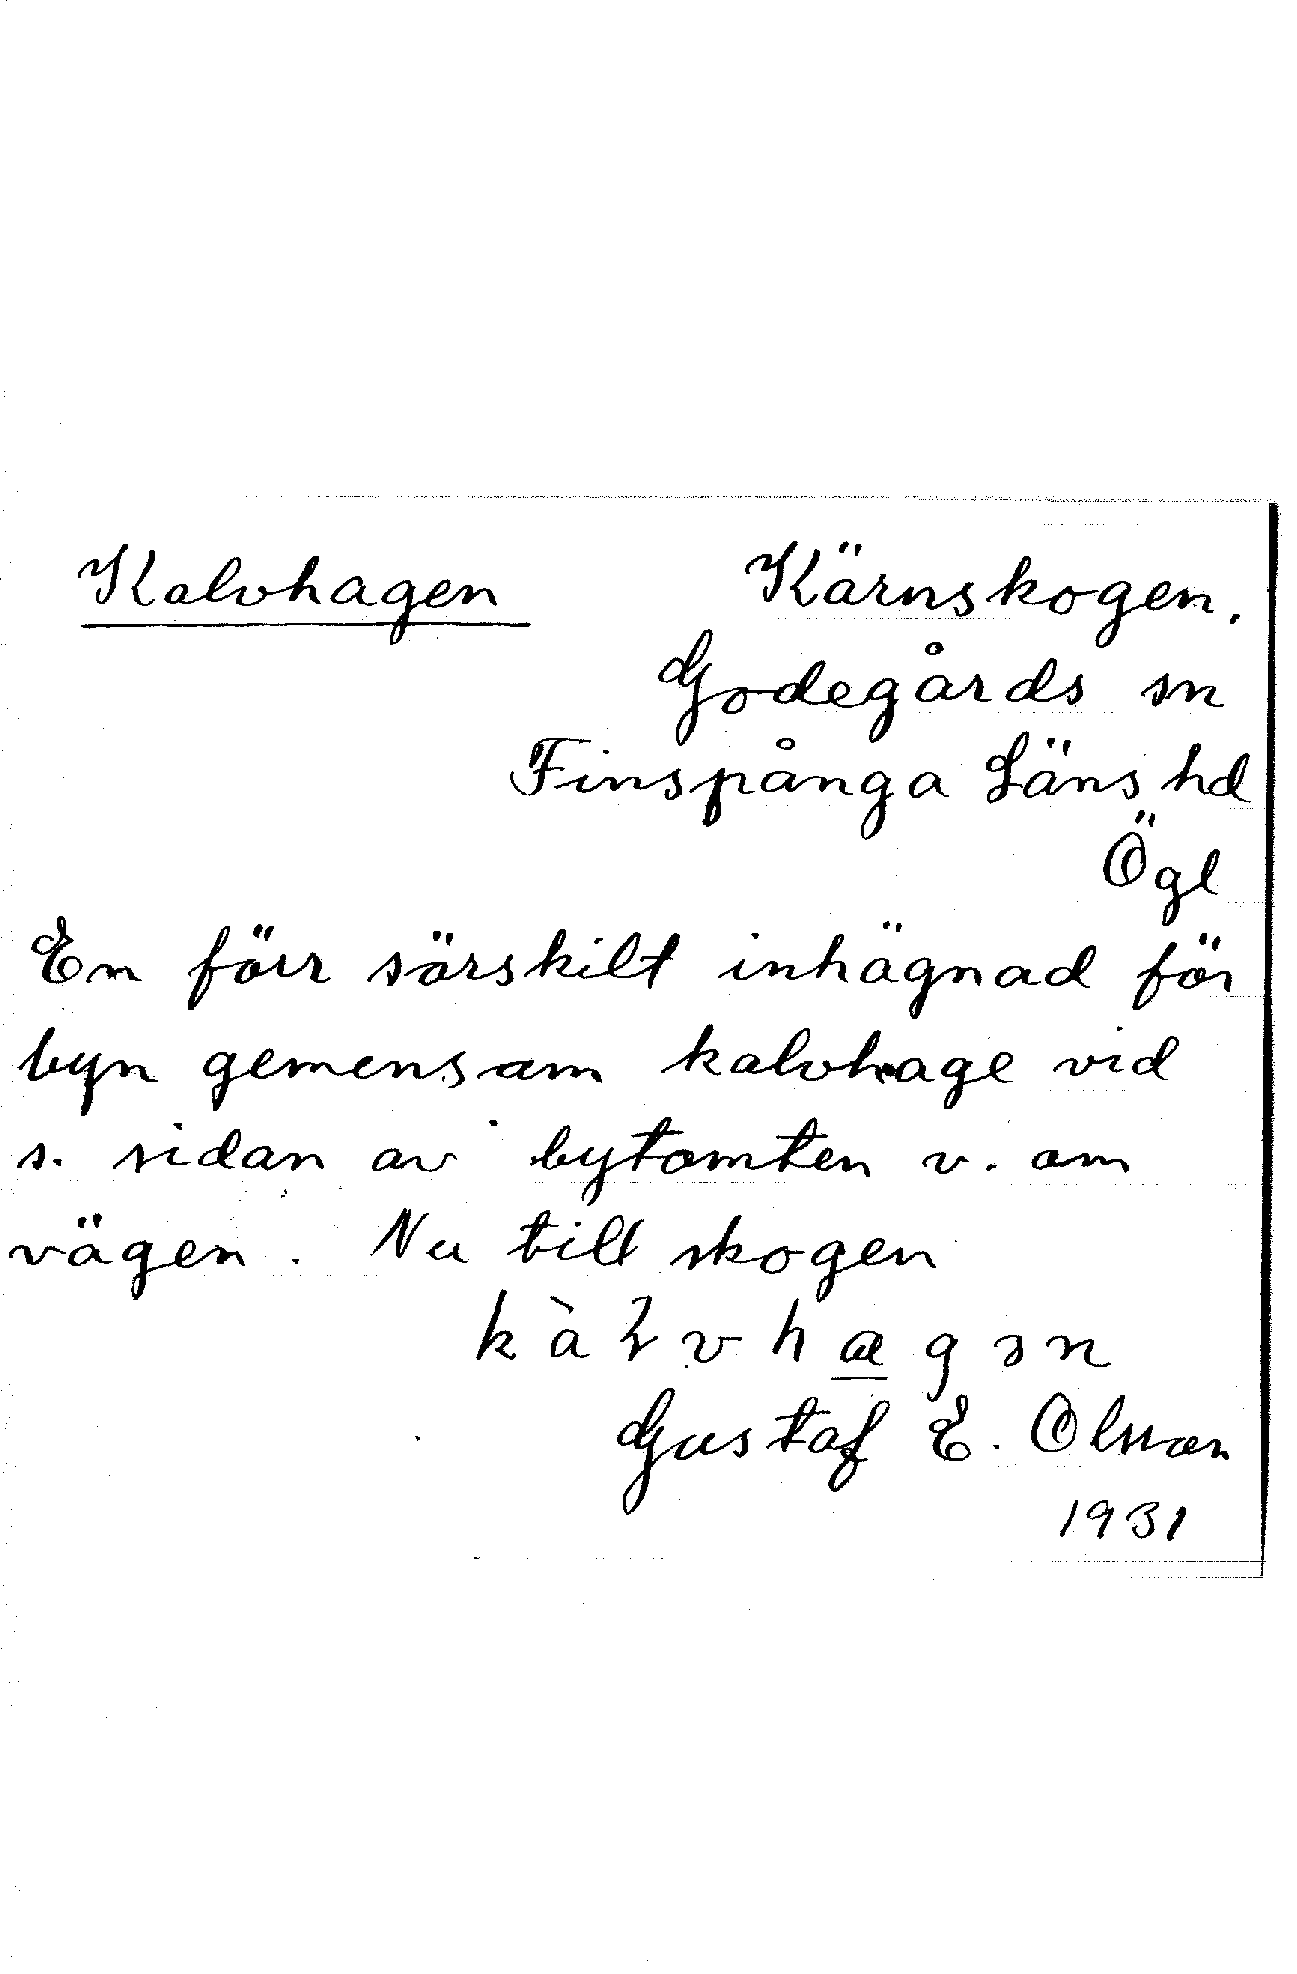 Kalvhagen Kärnskogen.
Godegårds sn
Finspånga Läns hd
Ögl
En förr särskilt inhägnad för
byn gemensam kalvhage vid
s. sidan av bytomten v. om
vägen. Nu till skogen
kàɭvhagən
Gustaf E. Olsson
1931